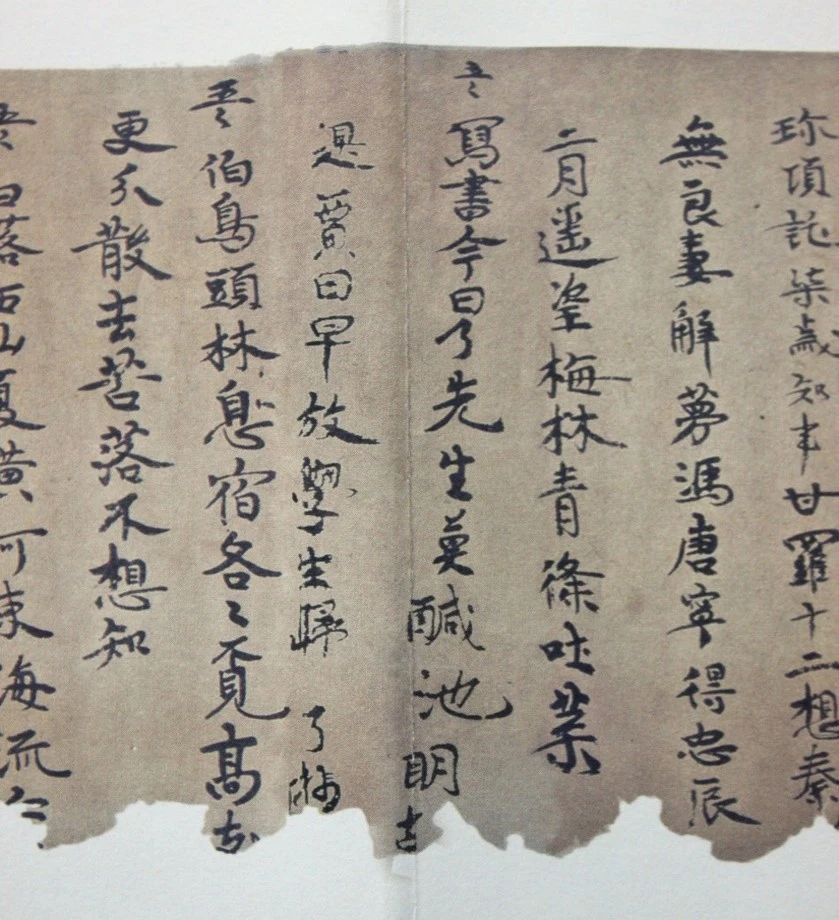 珎項託柒歲知事甘羅十二想秦
無良妻解夢馮唐寧得忠辰
二月遥望梅林青條吐葉
五言 寫書今日了先生莫醎池明
賈日早放學生歸 了
五言 伯鳥頭林息宿各々覓高
更分散去苦落不想知
五言 日落西山夏潢河東海流